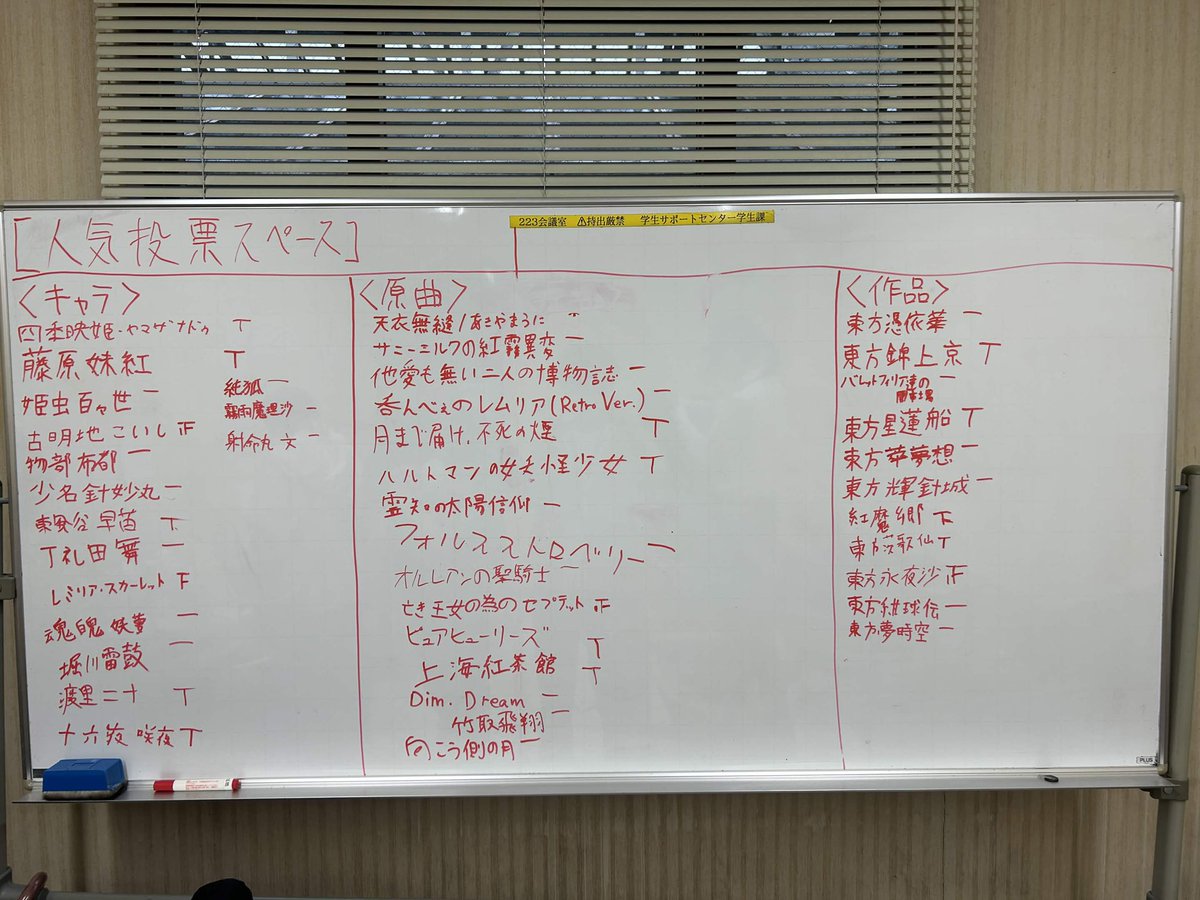 223会議室 ⚠持出厳禁 学生サポートセンター学生課
[人気投票スペース]
<キャラ>
四季映姫・ヤマザナドゥ T
藤原妹紅 T
姫虫百々世 一
古明地こいし 正
物部布都 一
少名針妙丸 一
東風谷早苗 T
丁礼田舞 一
レミリア・スカーレット 下
魂魄妖夢 一
堀川雷鼓 一
渡里ニナ T
十六夜咲夜 T
純狐 一
霧雨魔理沙 一
射命丸文 一
<原曲>
天衣無縫/あきやまうに 一
サニーミルクの紅霧異変 一
他愛も無い二人の博物誌 一
呑んべぇのレムリア(Retro Ver.) 一
月まで届け、不死の煙 T
ハルトマンの妖怪少女 T
霊知の太陽信仰 一
フォルスストロベリー 一
オルレアンの聖騎士 一
亡き王女の為のセプテット 正
ピュアヒューリーズ T
上海紅茶館 T
Dim. Dream 一
竹取飛翔 一
向こう側の月 一
<作品>
東方憑依華 一
東方錦上京 T
バレットフィリア達の 一
東方星蓮船 T
東方萃夢想 一
東方輝針城 一
紅魔郷 下
東方茨歌仙 T
東方永夜沙 正
東方紺珠伝 一
東方夢時空 一
PLUS